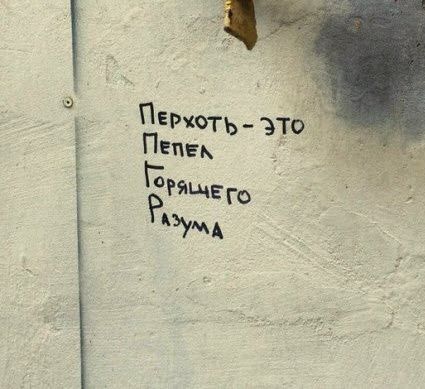 Перхоть - это
Пепел
Горящего
Разума